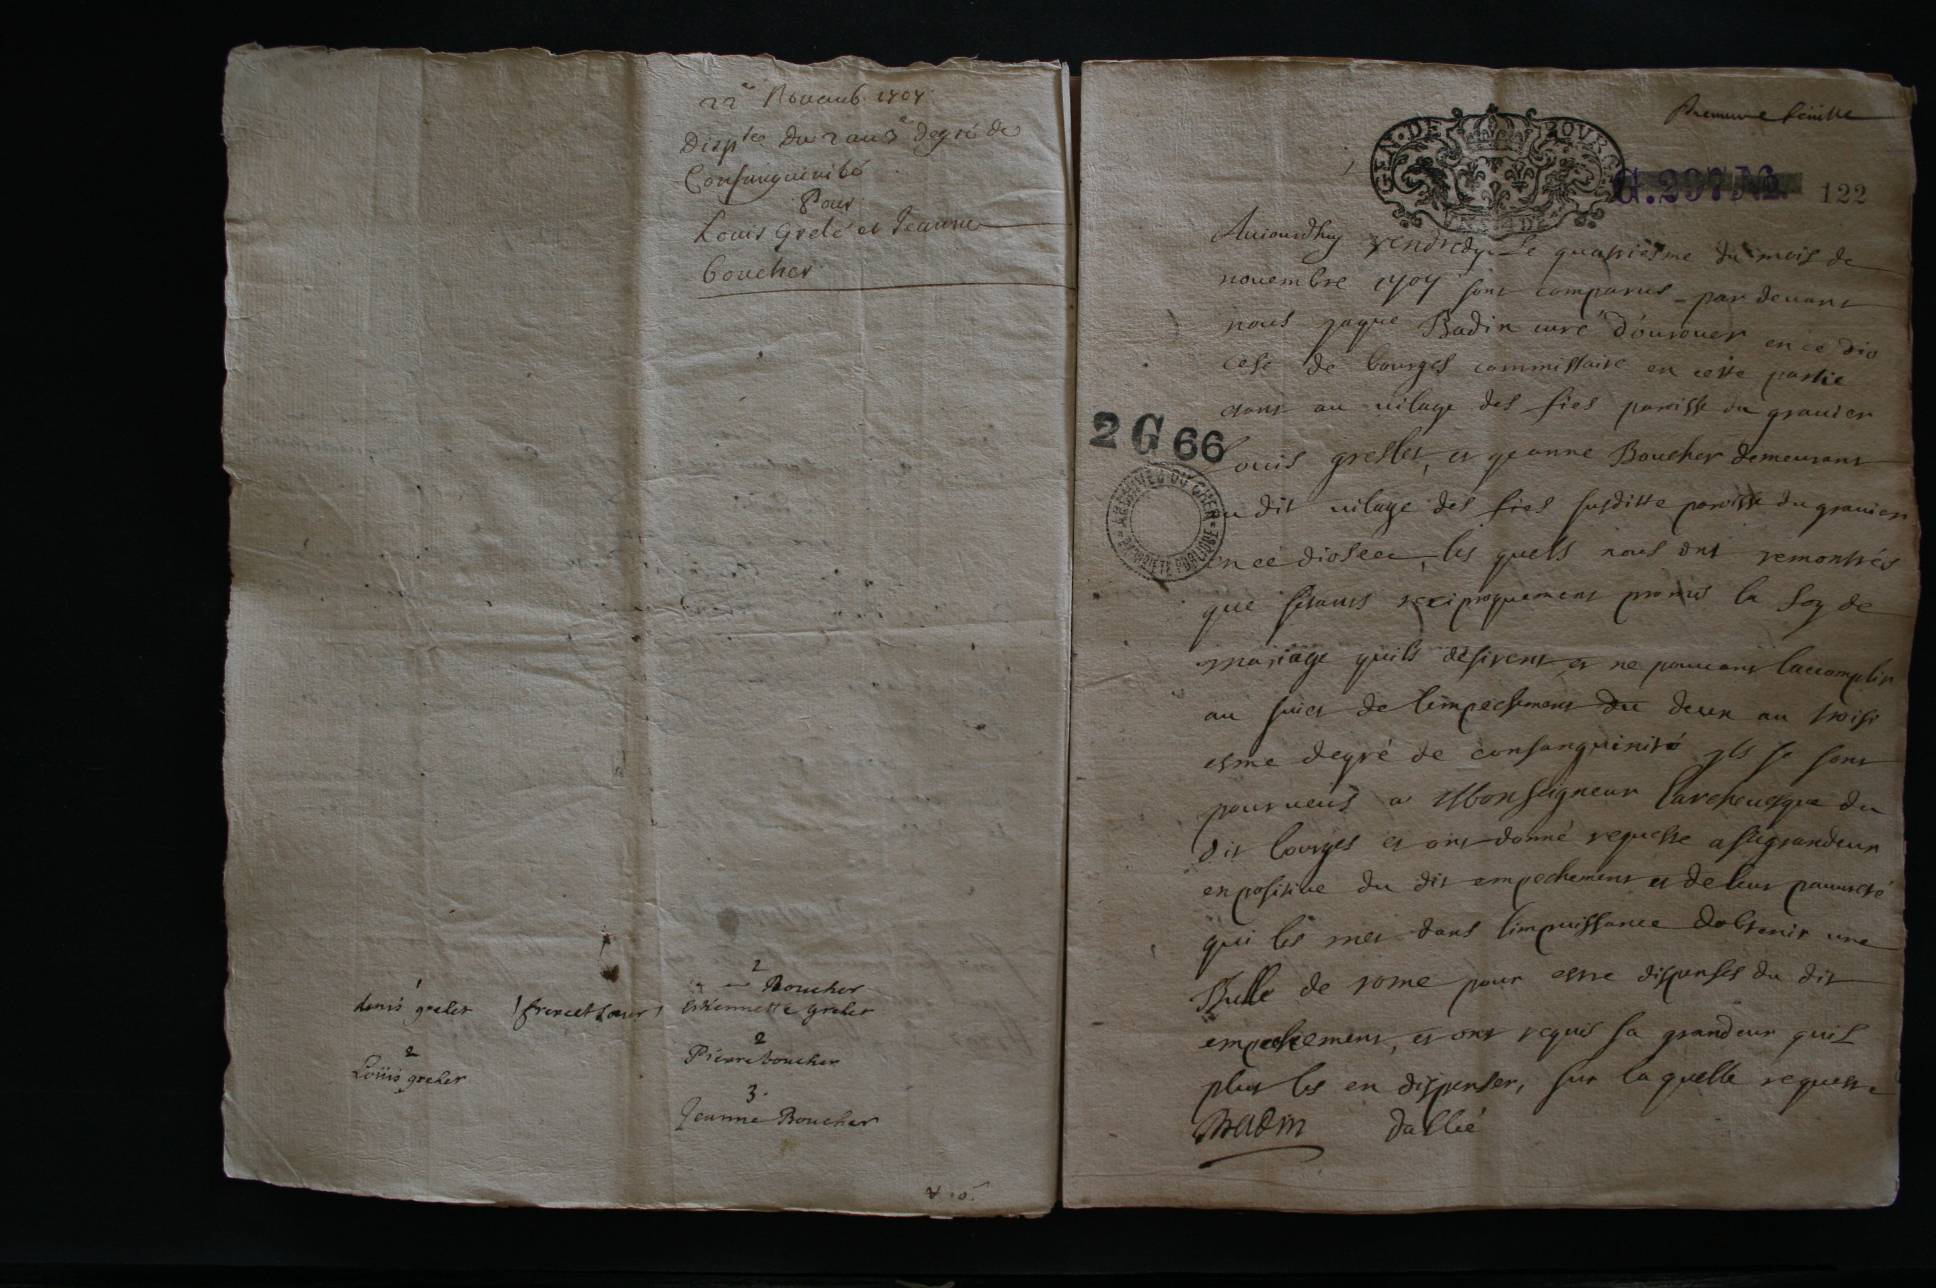 22e Nouemb. 1707
Dispce du 2 au 3e degré de
Consanguinité
Pour
Louis Grelé et Jeanne
boucher
1
denis grelet frere et soeur
2
Boucher
estiennette grelet
2
Loüis grelet
2
Pierre boucher
3.
Jeanne Boucher
premiere feüille
GEN. DE BOURG
G. 297
122
2 G 66
ARCHIVES DU CHER
PROPRIÉTÉ PUBLIQUE
Auiourdhuy vendredy le quatriesme du mois de
nouembre 1707 sont comparus par deuant
nous jaque Badin curé d'ourouer en ce dio
cese de bourges commissaire en cette partie
etant au uilage des fies paroisse du grauier
Louis greslet, et jeanne Boucher demeurant
au dit uilage des fies susditte paroisse du grauier
en ce diosece, les quels nous ont remontrés
que s'étants reciproquement promis la foy de
mariage quils désirent et ne pouuant laccomplir
au suiet de l'empechement du deux au troisi
esme degré de consanguinité ils se sont
pourueus a Monseigneur larcheuesque du
dit bourges et ont donné requeste a sa grandeur
expositiue du dit empechement et de leur pauureté
qui les met dans l'impuissance dobtenir une
Bulle de rome pour estre dispensés du dit
empechement, et ont requis sa grandeur quil
plut les en dispenser, sur la quelle requeste
Badin dallié